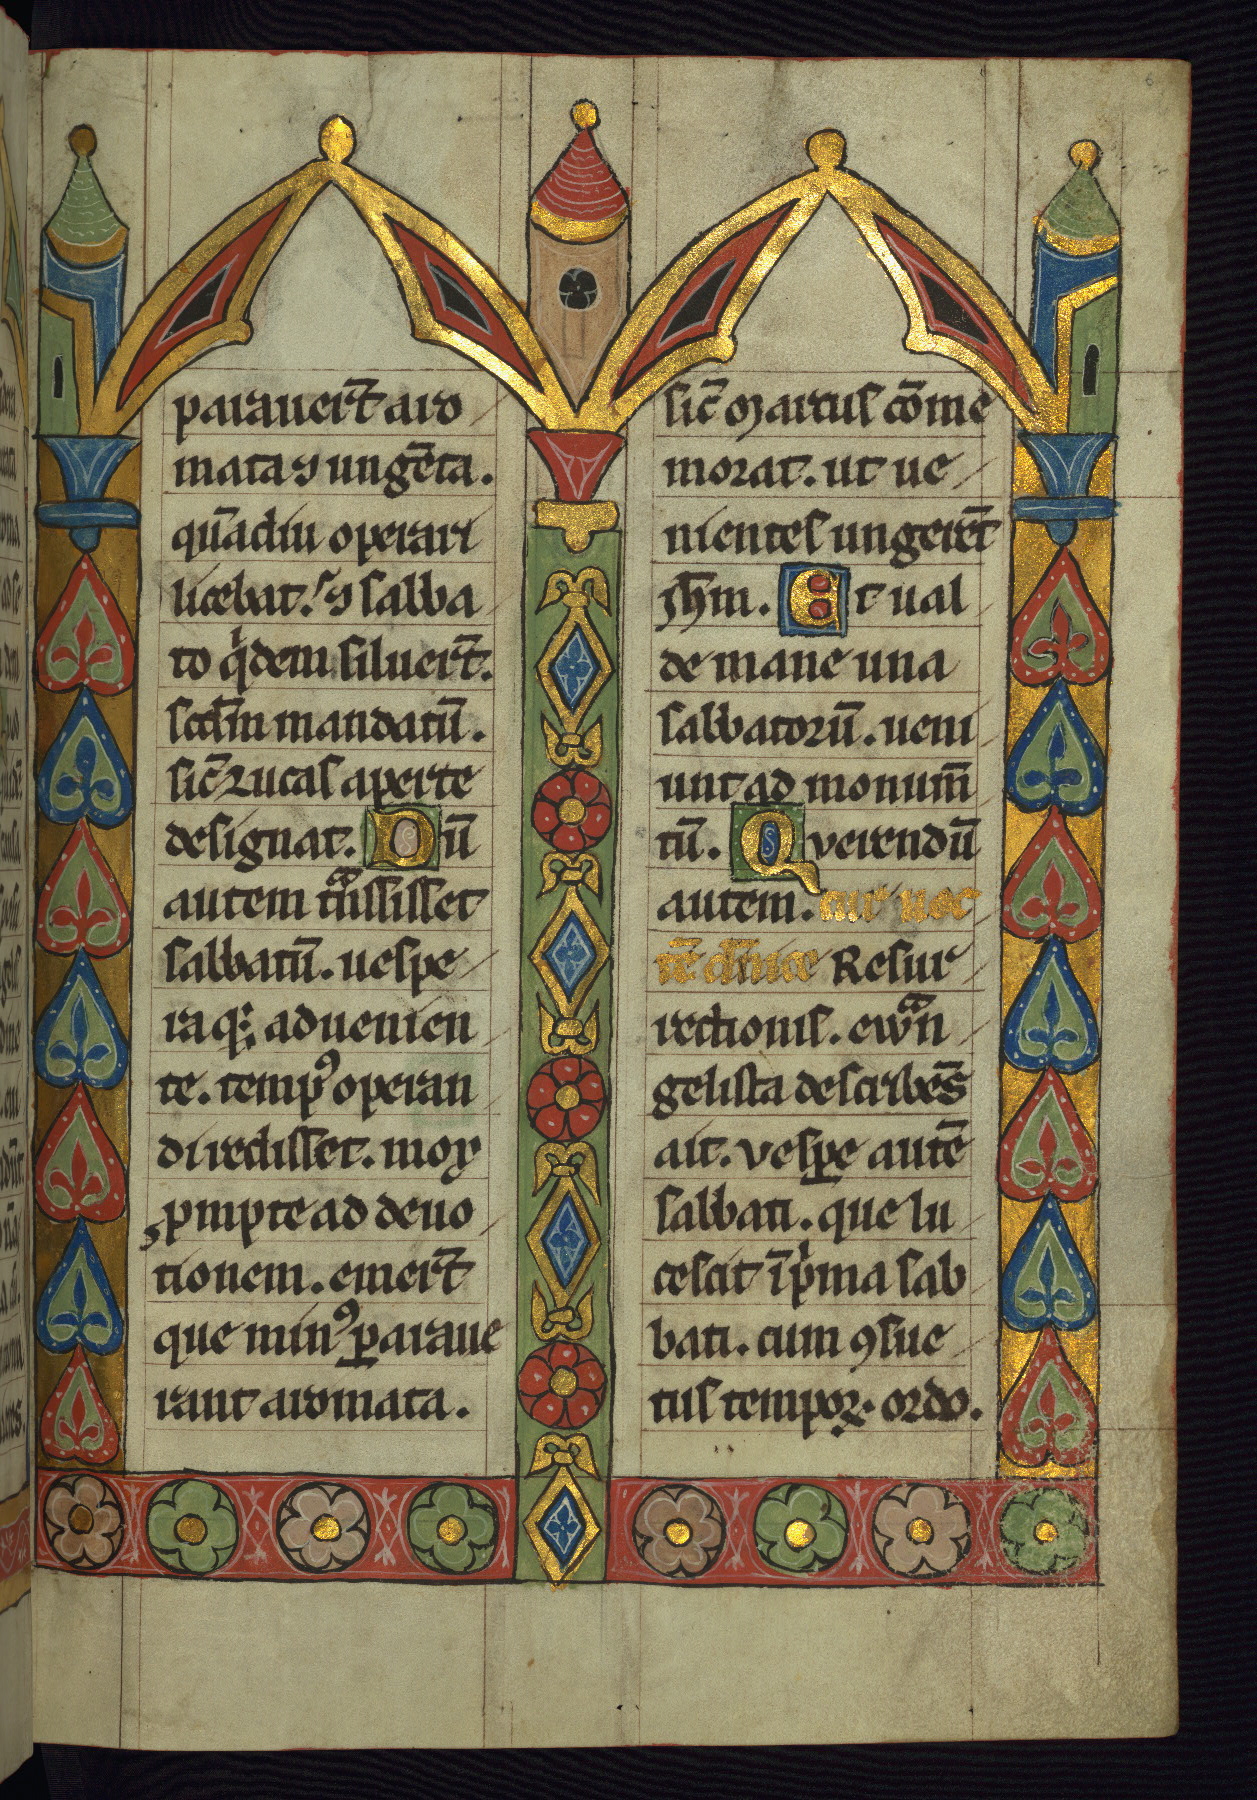 parauer̄t aro
mata ⁊ ungēta.
quādiu operari
licebat. ⁊ sabba
to qͥdem siluer̄t.
scd̄m mandatū.
sic̄ Lucas aperte
designat. Dū
autem tͣnsisset
sabbatū. uespe
raqꝫ adueni en
te. tempꝰ operan
di redisset. mox
ꝓmpte ad deuo
tionem. emer̄t
que minꝰ ꝑaraue
rant aromata.
sic̄ Marcus cōme
morat. ut ue
nientes ungerēt
ihm̄. Et ual
de mane una
sabbatorū. ueni
unt ad monum̄
tū. Querendū
autem. cur noc
tē d̄nice Resur
rectionis. ewͣn
gelista describēs
ait. Vesꝑe autē
sabbati. que lu
cescit ī pͥma sab
bati. cum ꝯsue
tus tempoꝝ. ordo.
6